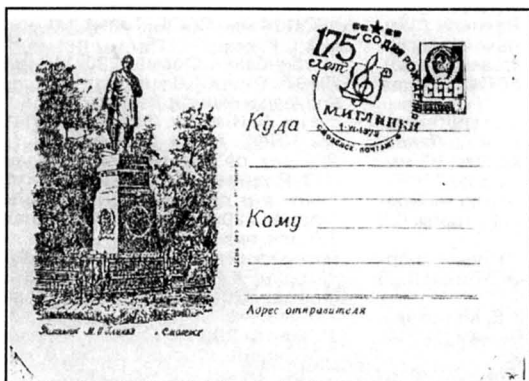 175
лет
СО ДНЯ РОЖДЕНИЯ
М.И.ГЛИНКИ
1·VI·1979
СМОЛЕНСК ПОЧТАМТ
СССР
Куда
Кому
Адрес отправителя
Памятник М. И. Глинке г. Смоленск